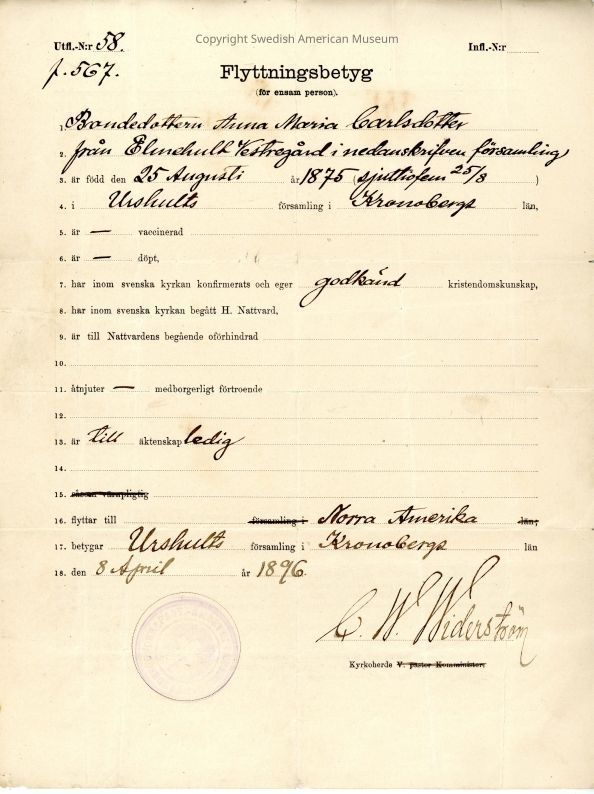 Copyright Swedish American Museum
Utfl.-N:r 58. Infl.-N:r
f. 567.
Flyttningsbetyg
(för ensam person).
1. Bondedottern Anna Maria Carlsdotter
2. från Elmehult Vestregård i nedanskrifven församling,
3. är född den 25 Augusti år 1875 (sjuttiofem 25/8 )
4. i Urshults församling i Kronobergs län,
5. är — vaccinerad
6. är — döpt,
7. har inom svenska kyrkan konfirmerats och eger godkänd kristendomskunskap,
8. har inom svenska kyrkan begått H. Nattvard,
9. är till Nattvardens begående oförhindrad
10.
11. åtnjuter — medborgerligt förtroende
12.
13. är till äktenskap ledig
14.
15. såsom värnpligtig
16. flyttar till församling i Norra Amerika län;
17. betygar Urshults församling i Kronobergs län
18. den 8 April år 1896.
C. W. Widerström
Kyrkoherde V. pastor Komminister.